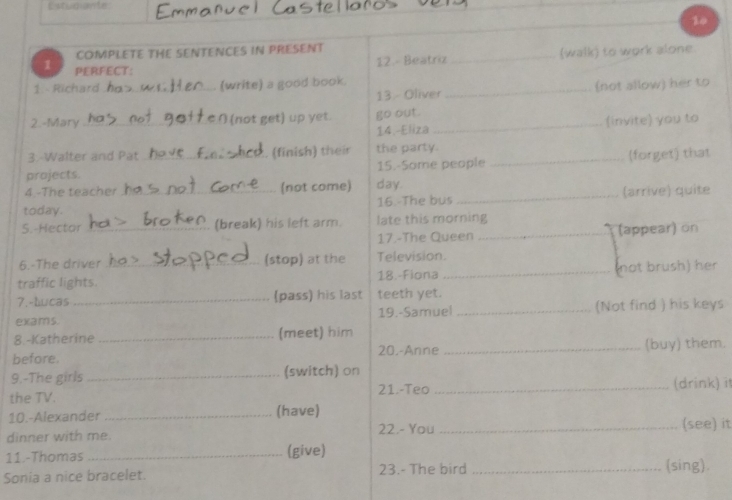 Estudiante: Emmanuel Castellanos
10
1 COMPLETE THE SENTENCES IN PRESENT
PERFECT:
1.- Richard has written (write) a good book.
2.-Mary has not gotten (not get) up yet.
3.-Walter and Pat have finished (finish) their
projects.
4.-The teacher has not come (not come)
today.
5.-Hector has broken (break) his left arm.
6.-The driver has stopped (stop) at the
traffic lights.
7.-Lucas (pass) his last
exams.
8.-Katherine (meet) him
before.
9.-The girls (switch) on
the TV.
10.-Alexander (have)
dinner with me.
11.-Thomas (give)
Sonia a nice bracelet.
12.- Beatriz (walk) to work alone.
13.- Oliver (not allow) her to
go out.
14.-Eliza (invite) you to
the party.
15.-Some people (forget) that
day.
16.-The bus (arrive) quite
late this morning
17.-The Queen (appear) on
Television.
18.-Fiona (not brush) her
teeth yet.
19.-Samuel (Not find ) his keys
20.-Anne (buy) them.
21.-Teo (drink) it
22.- You (see) it
23.- The bird (sing).